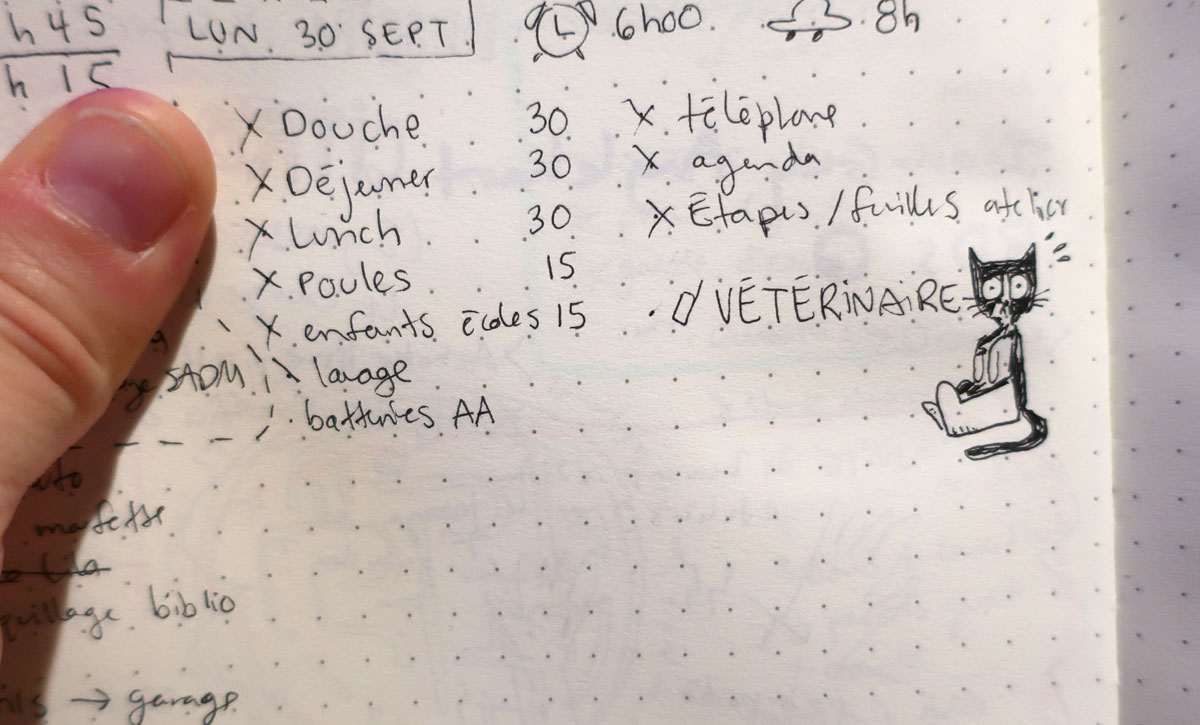 h 45
h 15
LUN. 30 SEPT
6h00
8h
X Douche 30
X Déjeuner 30
X Lunch 30
X Poules 15
X enfants écoles 15
\ lavage
. batteries AA
X téléphone
X agenda
X Étapes / feuilles atelier
. VÉTÉRiNAiRE
SADM
mafette
biblio
→ garage